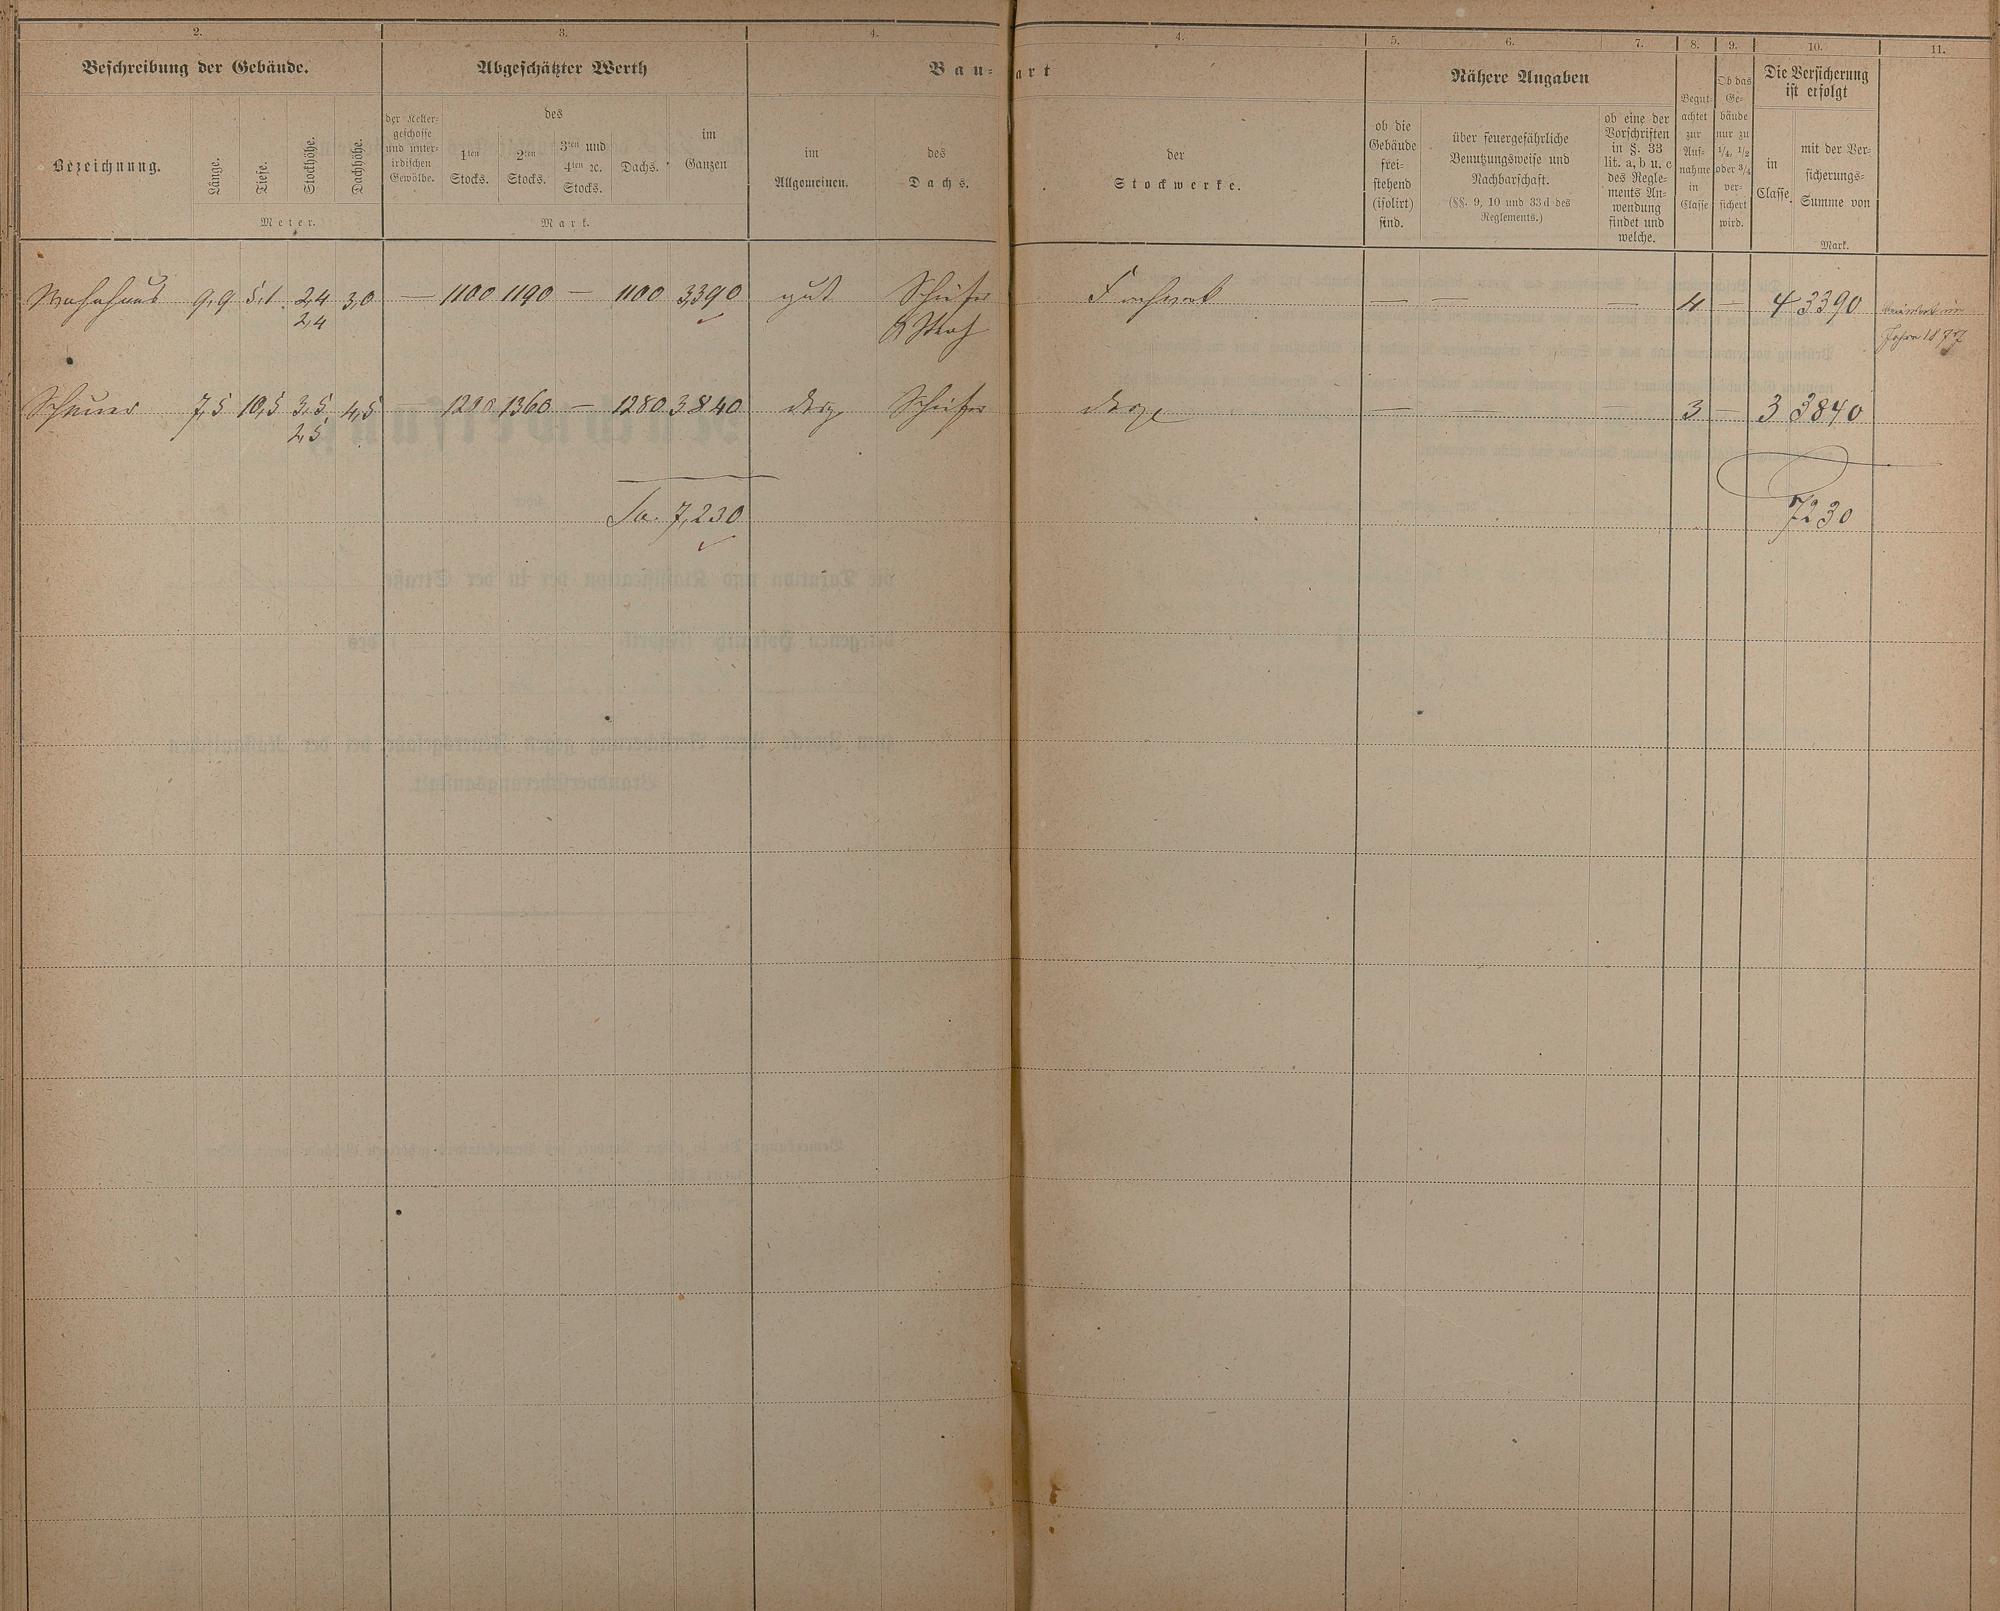 2.
3.
4.
4.
5.
6.
7.
8.
9.
10.
11.
Beschreibung der Gebäude.
Abgeschätzter Werth
Bau-
art
Nähere Angaben
Die Versicherung
ist erfolgt
Bezeichnung.
Länge.
Tiefe.
Stockhöhe.
Dachhöhe.
Meter.
der Keller-
geschosse
und unter-
irdischen
Gewölbe.
des
1ten
Stocks.
2ten
Stocks.
3ten und
4ten ꝛc.
Stocks.
Dachs.
im
Ganzen
Mark.
im
Allgemeinen.
des
Dachs.
der
Stockwerke.
ob die
Gebäude
frei-
stehend
(isolirt)
sind.
über feuergefährliche
Benutzungsweise und
Nachbarschaft.
(§§. 9, 10 und 33d des
Reglements.)
ob eine der
Vorschriften
in §. 33
lit. a, b u. c
des Regle-
ments An-
wendung
findet und
welche.
Begut-
achtet
zur
Auf-
nahme
in
Classe
Ob das
Ge-
bäude
nur zu
1/4, 1/2
oder 3/4
ver-
sichert
wird.
in
Classe.
mit der Ver-
sicherungs-
Summe von
Mark.
Wohnhaus 9,9 5,1 2,4 3,0 — 1100 1190 — 1100 3,390 gut Schiefer Fachwerk — — — 4 — 4 3390
2,4
Jahre 1877
Scheuer 7,5 10,5 3,5 4,5 — 1200 1360 — 1280 3840 desgl. Schiefer desgl. — — — 3 — 3 3840
2,5
Sa. 7,230
7230